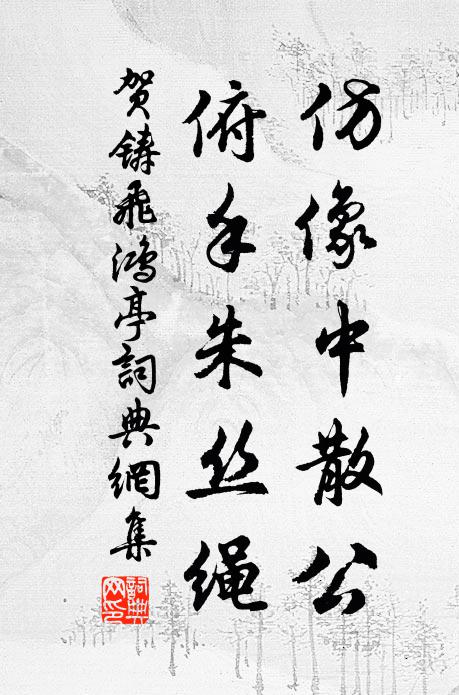 仿像中散公
俯手朱丝绳
贺铸飞鸿亭詞典網集
詞典
网印